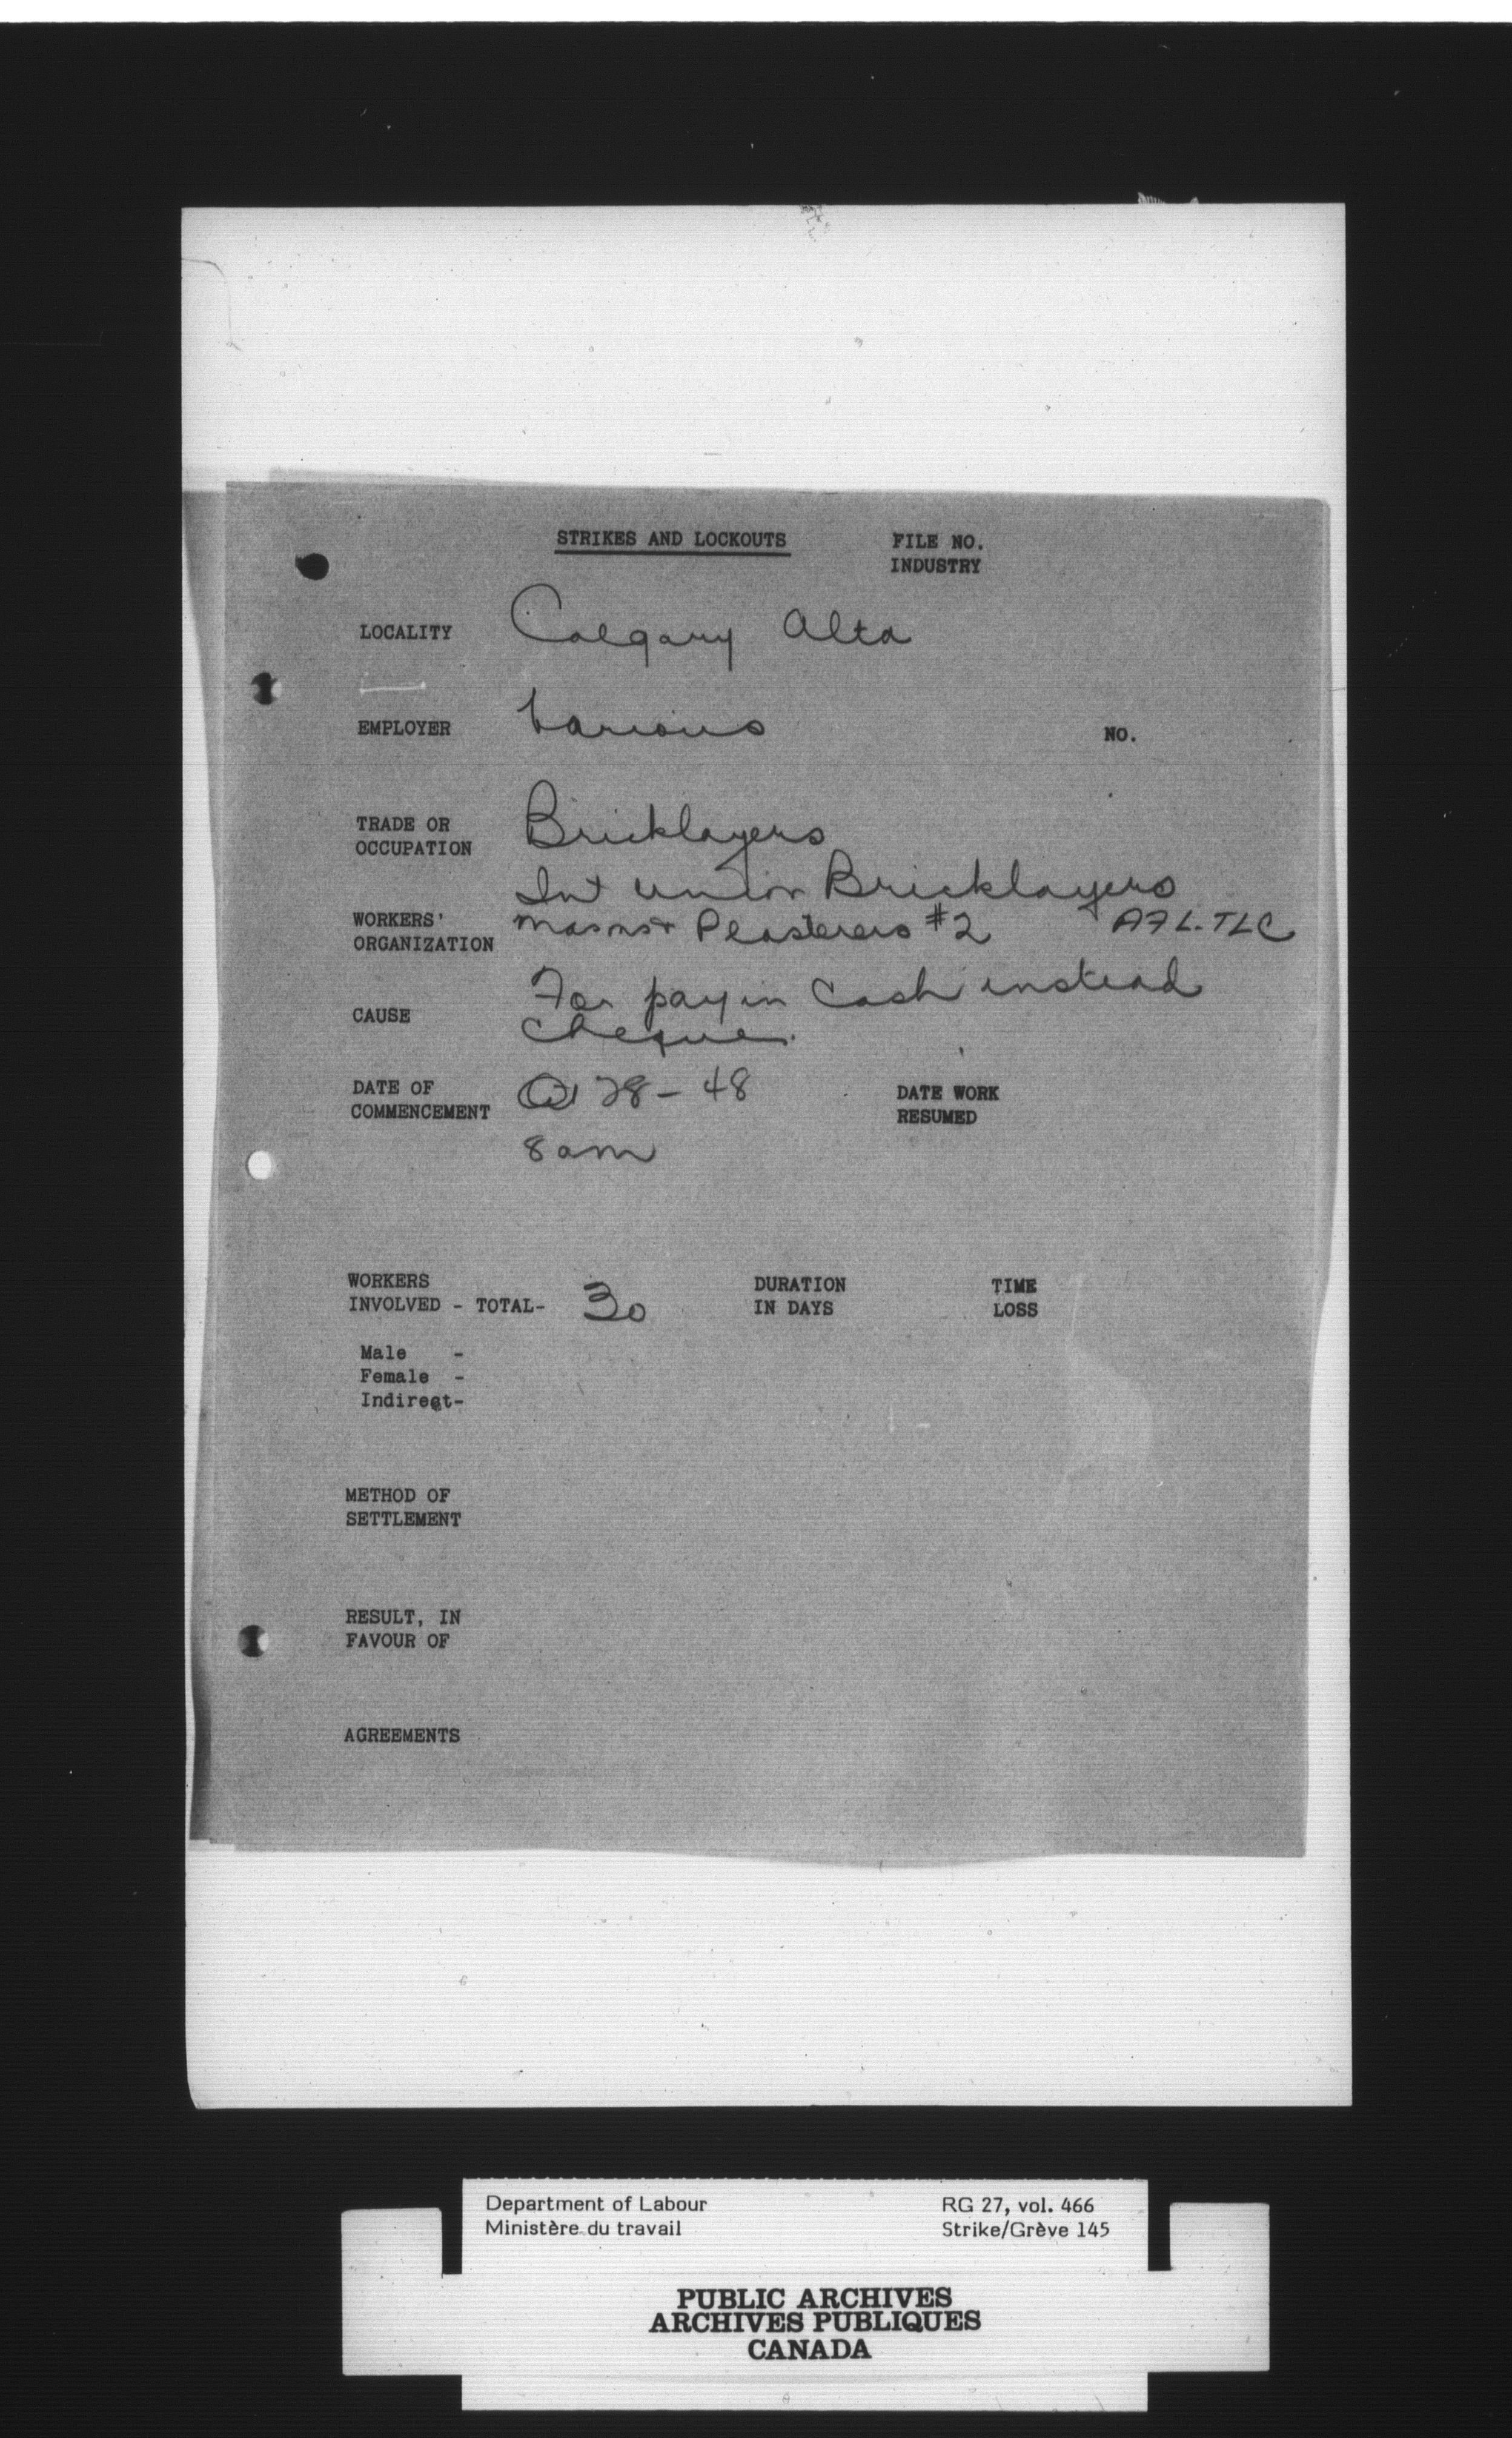 STRIKES AND LOCKOUTS
FILE NO.
INDUSTRY
LOCALITY Calgary Alta
EMPLOYER Various NO.
TRADE OR
OCCUPATION Bricklayers
Int Union Bricklayers
WORKERS' Masons & Plasterers #2 AFL-TLC
ORGANIZATION
For pay in Cash instead
CAUSE Cheque.
DATE OF 28-48 DATE WORK
COMMENCEMENT RESUMED
8 am
WORKERS DURATION TIME
INVOLVED - TOTAL- 30 IN DAYS LOSS
Male -
Female -
Indirect-
METHOD OF
SETTLEMENT
RESULT, IN
FAVOUR OF
AGREEMENTS
Department of Labour RG 27, vol. 466
Ministère du travail Strike/Grève 145
PUBLIC ARCHIVES
ARCHIVES PUBLIQUES
CANADA